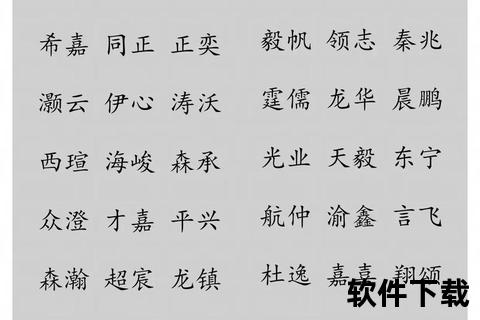 希嘉 同正 正奕 毅帆 领志 秦兆
灏云 伊心 涛沃 霆儒 龙华 晨鹏
西瑄 海峻 森承 光业 天毅 东宁
众澄 才嘉 平兴 航仲 渝鑫 言飞
森瀚 超宸 龙镇 杜逸 嘉喜 翔颂
软件下载